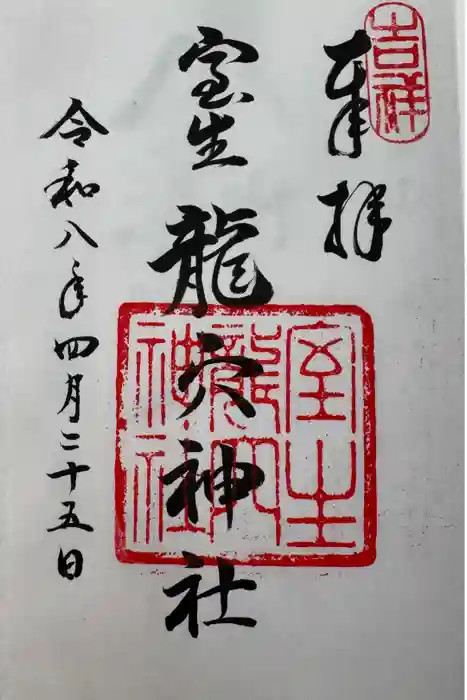 吉祥
奉拝
室生龍穴神社
室生
龍穴
神社
令和八年四月二十五日